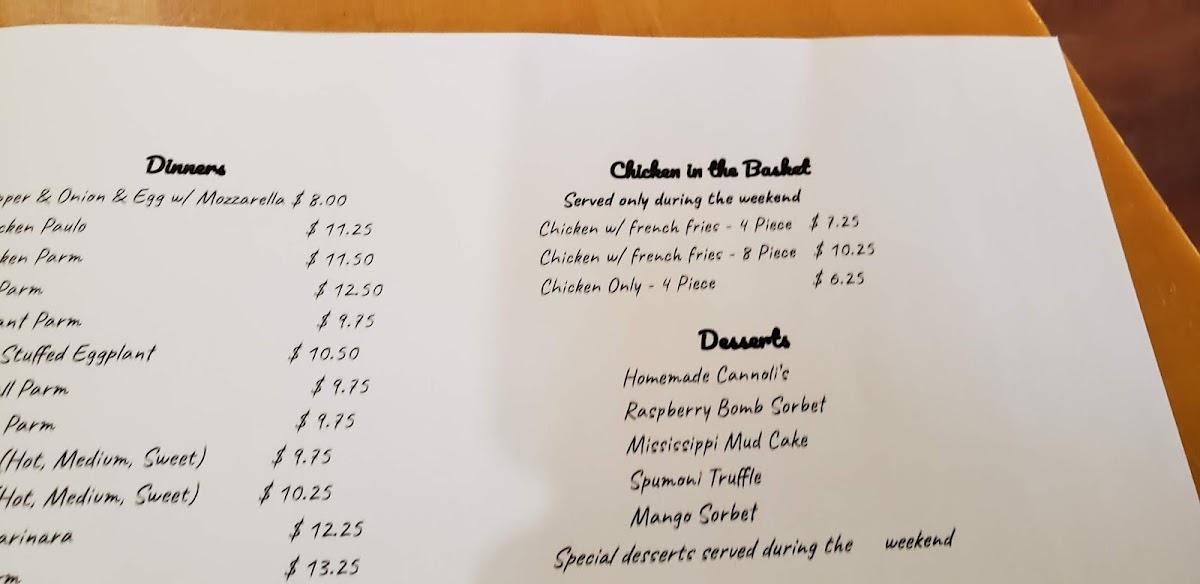 Dinners
& Onion & Egg w/ Mozzarella $ 8.00
Paulo $ 11.25
Parm $ 11.50
Parm $ 12.50
Parm $ 9.75
Stuffed Eggplant $ 10.50
Parm $ 9.75
Parm $ 9.75
(Hot, Medium, Sweet) $ 9.75
(Hot, Medium, Sweet) $ 10.25
arinara $ 12.25
rm $ 13.25
Chicken in the Basket
Served only during the weekend
Chicken w/ french fries - 4 Piece $ 7.25
Chicken w/ french fries - 8 Piece $ 10.25
Chicken Only - 4 Piece $ 6.25
Desserts
Homemade Cannoli's
Raspberry Bomb Sorbet
Mississippi Mud Cake
Spumoni Truffle
Mango Sorbet
Special desserts served during the weekend